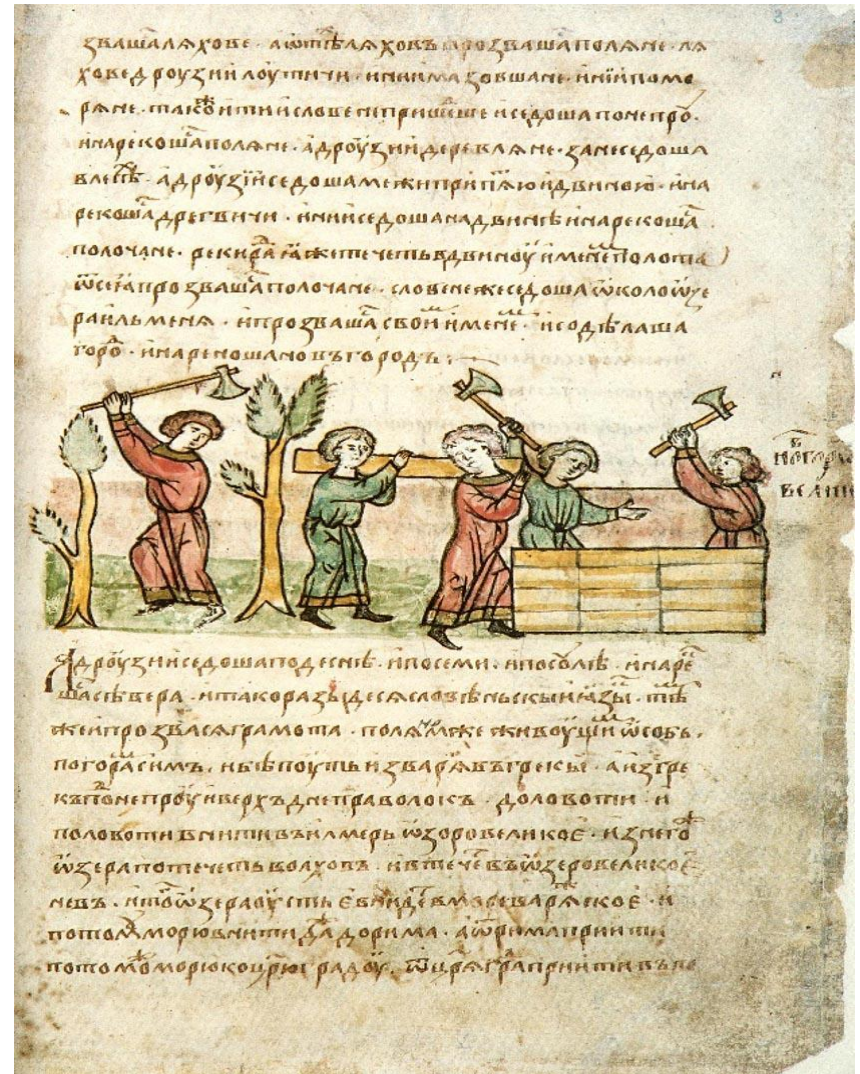 звашалѧхове · аѿтѣлѧховъпрозвашаполѧне · лѧ
ховедроузиилоутичи · ининмазовшане · инїипомо
рѧне · такоитиисловенепришешеиседошапоне про.
инарекошаполѧне · адроузиидеревлѧне · занеседоша
влесѣ · адроузїиседошамежиприпѧюидвиною · ина
рекошадреговичи · инииседошанадвинѣинарекоша
полочане · рекирадиꙗжетечетьвдвиноуименемполота
ѿсеꙗпрозвашаполочане · словенежеседошаѡколоѡзе
раильменꙗ · ипрозвашасвоиимене · исодѣлаша
горо · инарекошановъгородъ ·
новъгоро
велик
Адроузииседошаподеснѣ · ипосеми · ипосоулѣ · инаре
шасѣвера · итакоразыдесѧсловѣньскыиꙗзы · тѣ
жеипрозвасѧграмота · полѧномжеживоущииѡсобь ·
погорасимъ · ибѣпоутьизварѧвъгрекы · аизгре
къпонепроуиверхъднеправолокъ · доловоти · и
половотивнитивъилмерьѡзоровеликоє · изнего
ѡзерапотечетьволховъ · ивтечевъѡзеровеликоє
невъ · итогоѡзераоустьєвнидевмореварѧскоє · и
потомоуморювнитидадорима · аѿримаприити
потомоморюкоцрюградоу · ѿцрѧграприитивъпо